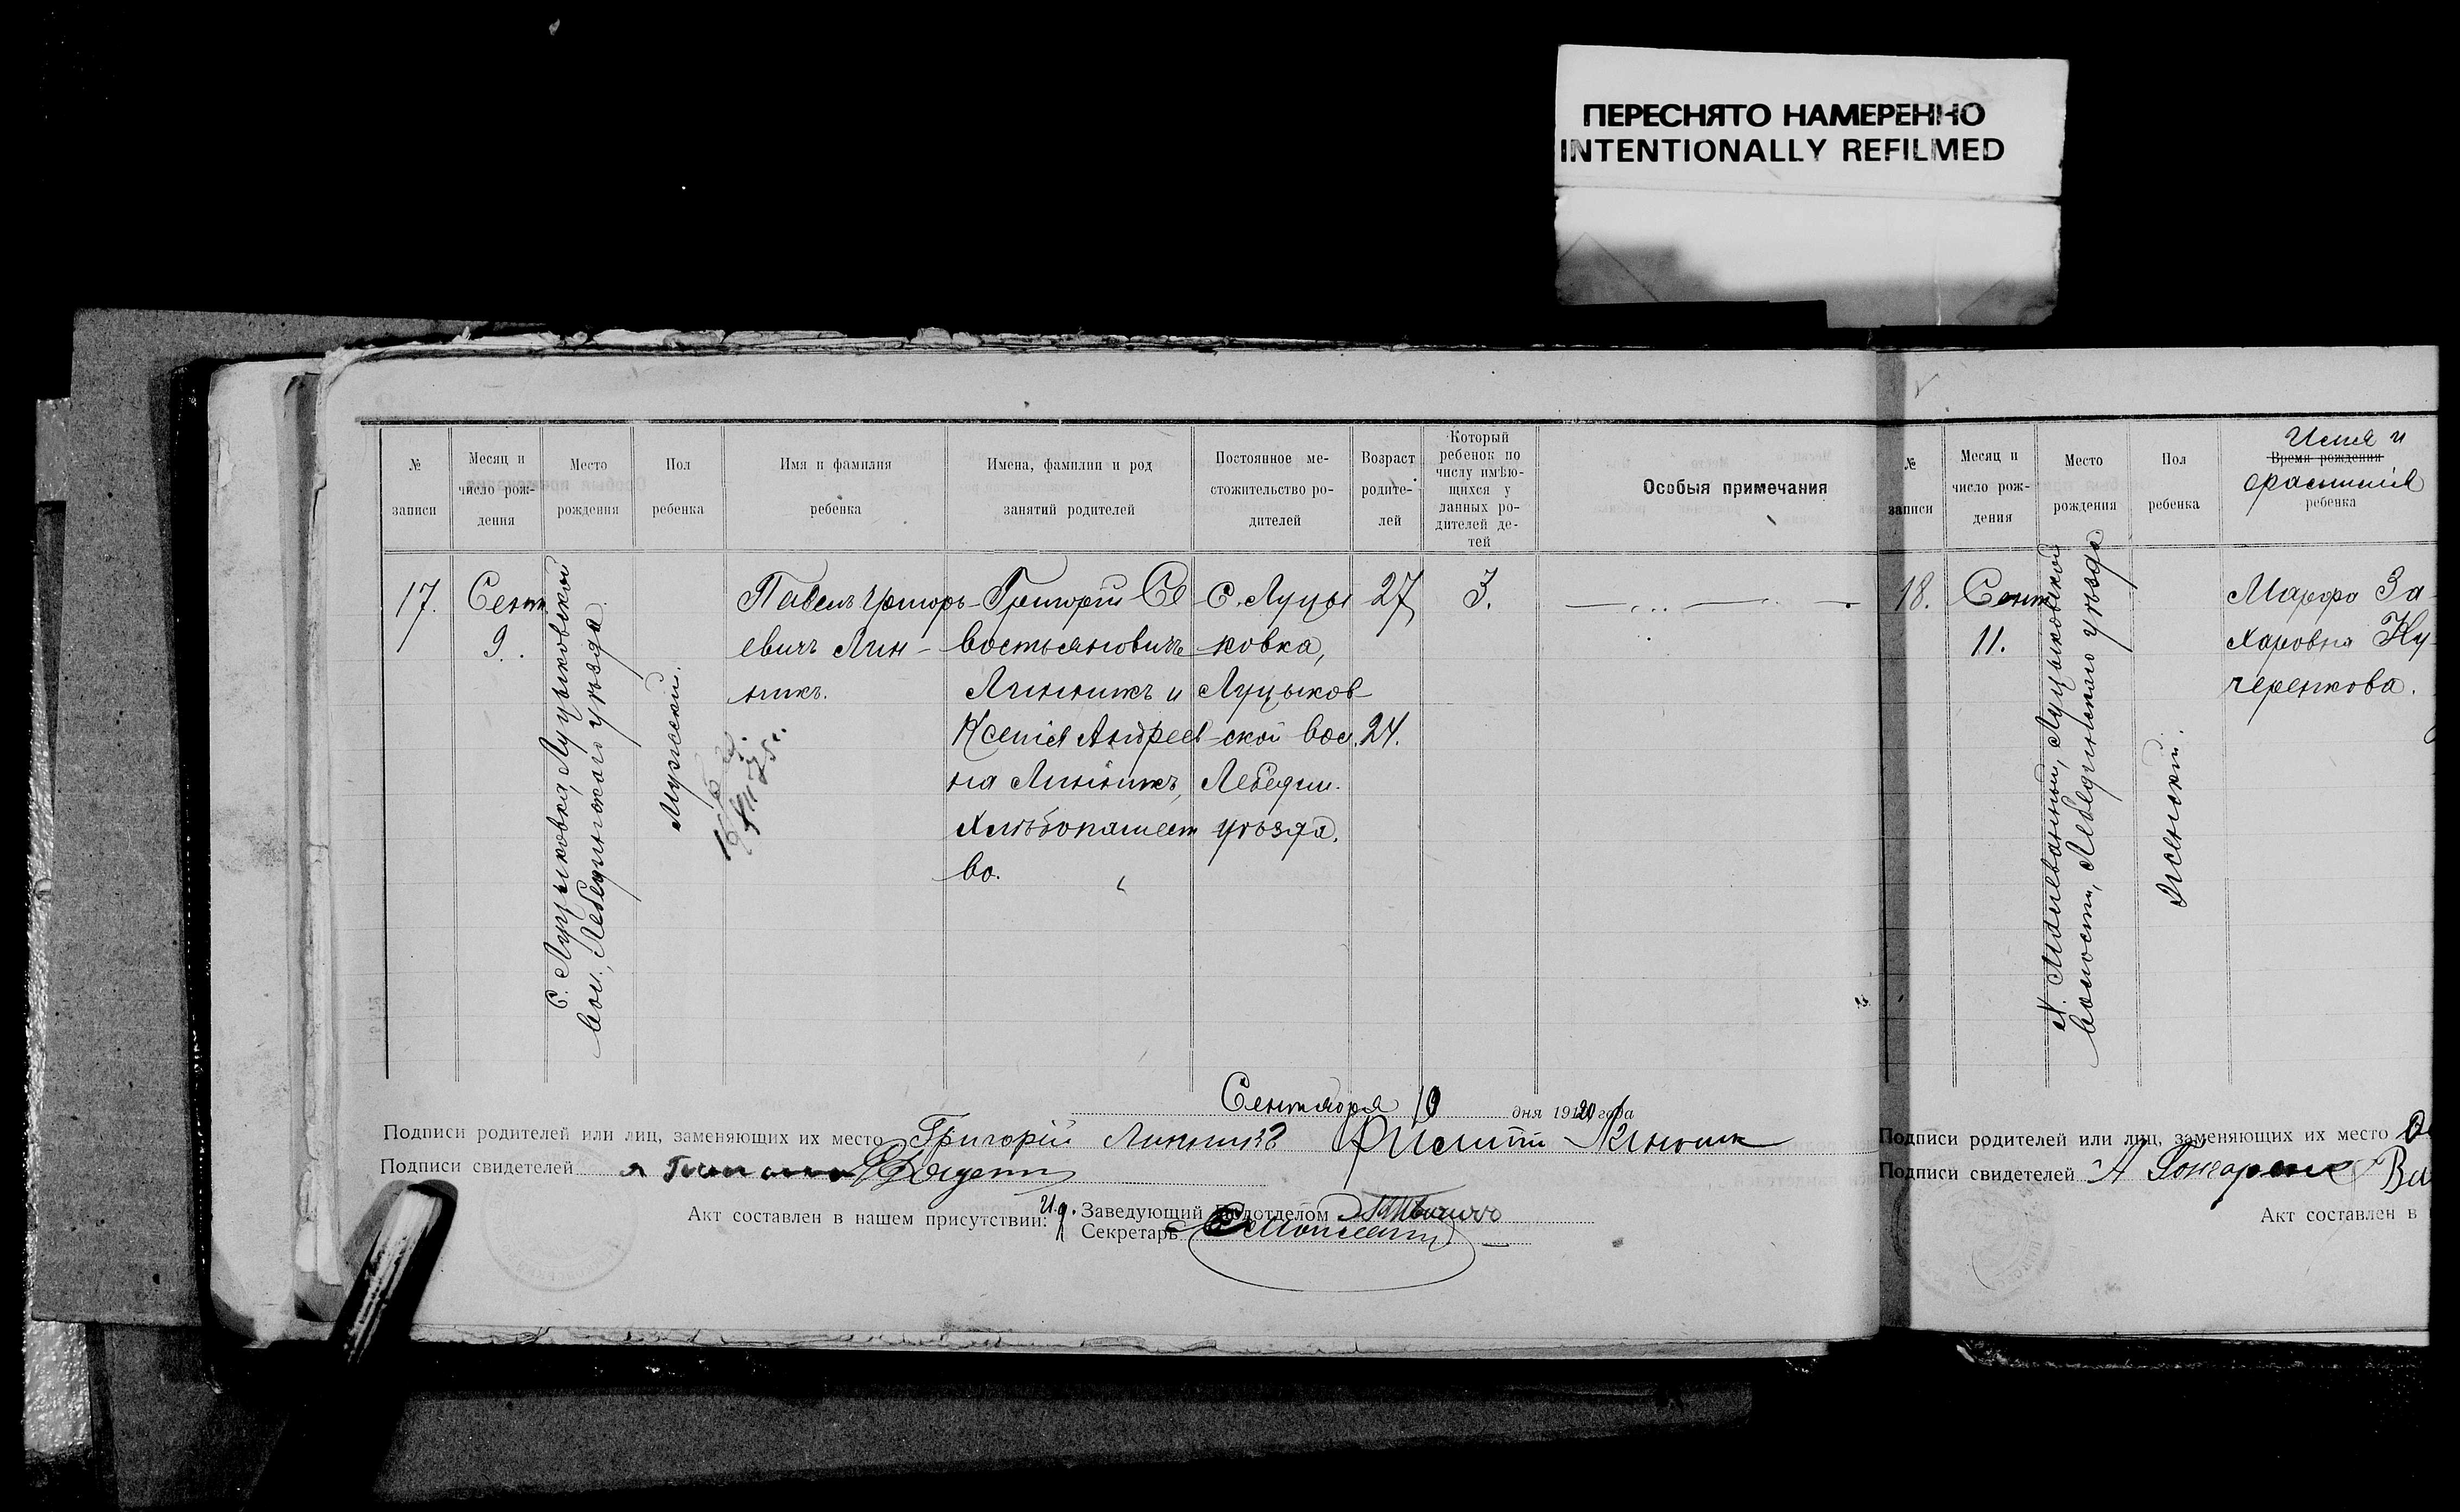 ПЕРЕСНЯТО НАМЕРЕННО
INTENTIONALLY REFILMED
№ записи
Месяц и число рож-дения
Место рождения
Пол ребенка
Имя и фамилия ребенка
Имена, фамилии и род занятий родителей
Постоянное ме-стожительство ро-дителей
Возраст родите-лей
Который ребенок по числу имѣю-щихся у данных ро-дителей де-тей
Особыя примечания
17.
Сент.
9.
С. Луцыковка, Луцыковской
вол., Лебединскаго уѣзда
Мужеский.
Павелъ Григорь-
евичъ Лин-
никъ.
Григорій Се
востьяновичъ
Линникъ и
Ксенія Андреев
на Линникъ,
Хлѣбопашест
во.
С. Луцы
ковка,
Луцыков
ской вол.
Лебедин.
уѣзда.
27
24.
3.
Сентября 10 дня 1920 года
Подписи родителей или лиц, заменяющих их место Григорій Линникъ Филипп Линник
Подписи свидетелей
Акт составлен в нашем присутствии:
И.д. Заведующий Подотделом
Секретарь
№ записи
Месяц и число рож-дения
Место рождения
Пол ребенка
Имя и
Время рождения
фамилія
ребенка
18.
Сент.
11.
волости, Лебединскаго уѣзда
Женский.
Марфа За
харовна Ку
черенкова.
Подписи родителей или лиц, заменяющих их место
Подписи свидетелей А Гончаренко
Акт составлен в